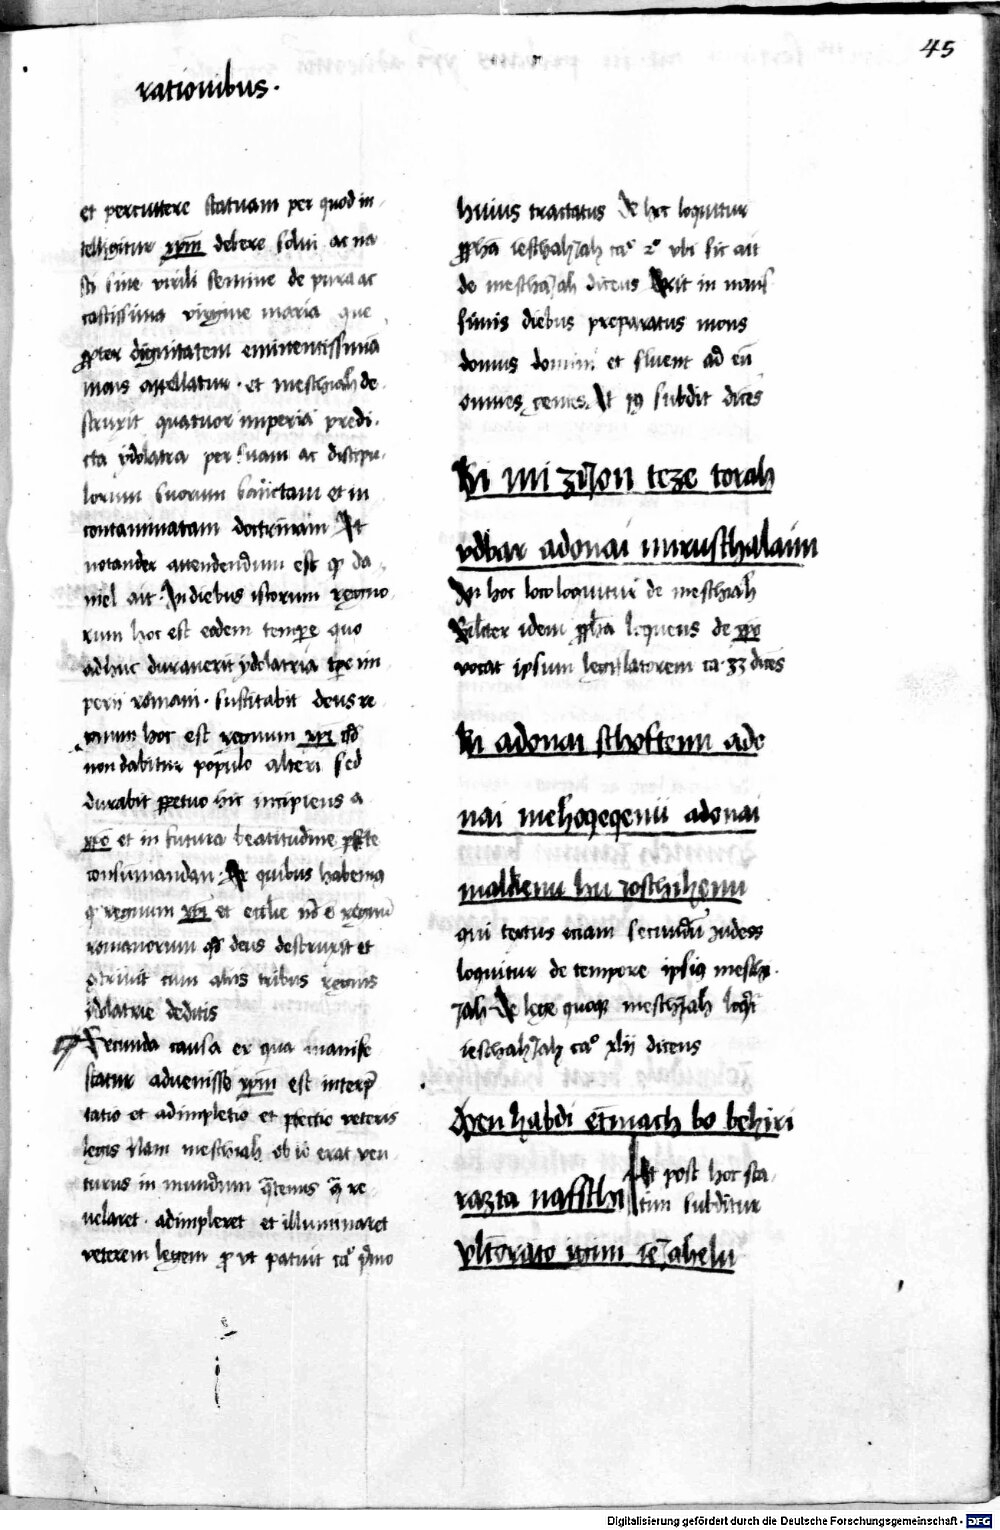 45
rationibus.
et percuttere statuam per quod in-
telligitur xpm̄ debere solui ac na
sci sine virili semine de pura ac
castissima virgine maria que
ꝓpter dignitatem eminentissimā
mons appellatur. et meschiah de-
struxit quatuor imperia predi-
cta ydolatra per suam ac discipu-
lorum suorum sanctam et in
contaminatam doctrinam Et
notander attendendum est ꝙ da-
niel ait. In diebus istorum regno
rum hoc est eodem tempore quo
adhuc durauerit ydolatria tꝑe im
perii romani. suscitabit deus re
gnum hoc est regnum xpi qd̄
non dabitur populo alteri sed
durabit ꝑpetuo hic incipiens a
xpō et in futura beatitudine ꝑfcte
consumandan. Ex quibus habemꝯ
ꝙ regnum xpi et ecclie nō ē regnū
romanorum qd̄ deus destruxit et
ꝯtriuit cum aliis tribus regnis
ydolatrie deditis
Secunda causa ex qua manife
statur aduenisse xpm̄ est interp̄
tatio et adimpletio et ꝑfectio veteris
legis Nam meschiah ob iō erat ven
turus in mundum q̄tenus q̄ re-
uelaret. adimpleret et illuminaret
veterem legem ꝓ vt patuit ca° p̄mo
huius tractatus De hoc loquitur
ꝓph̄a ieschahJah ca° 2° vbi sic ait
de meschiJah dicens Erit in nouis
simis diebus preparatus mons
domus domini et fluent ad eū
omnes gentes. Et ꝯ subdit dicēs
Ki mi ziJon teze torah
vdbar adonai mirusthalaim
In hoc loco loquitur de meschiah
Similiter idem ꝓph̄a loquens de xpo
vocat ipsum legislatorem ca. 33 dicēs
Ki adonai schoftenu ado
nai mehoqeqenu adonai
malchenu hu Joschihenu
qui textus etiam secundū Judeos
loquitur de tempore ipsiꝯ meschi-
Jah. De lege quoqꝫ meschiJah loqt̄r
ieschahJah ca° xlij dicens
Hen habdi etmach bo behiri
razta nafsthi Et post hoc sta-
tim subditur
vltorato iJim ieJahelu
Digitalisierung gefördert durch die Deutsche Forschungsgemeinschaft - DFG